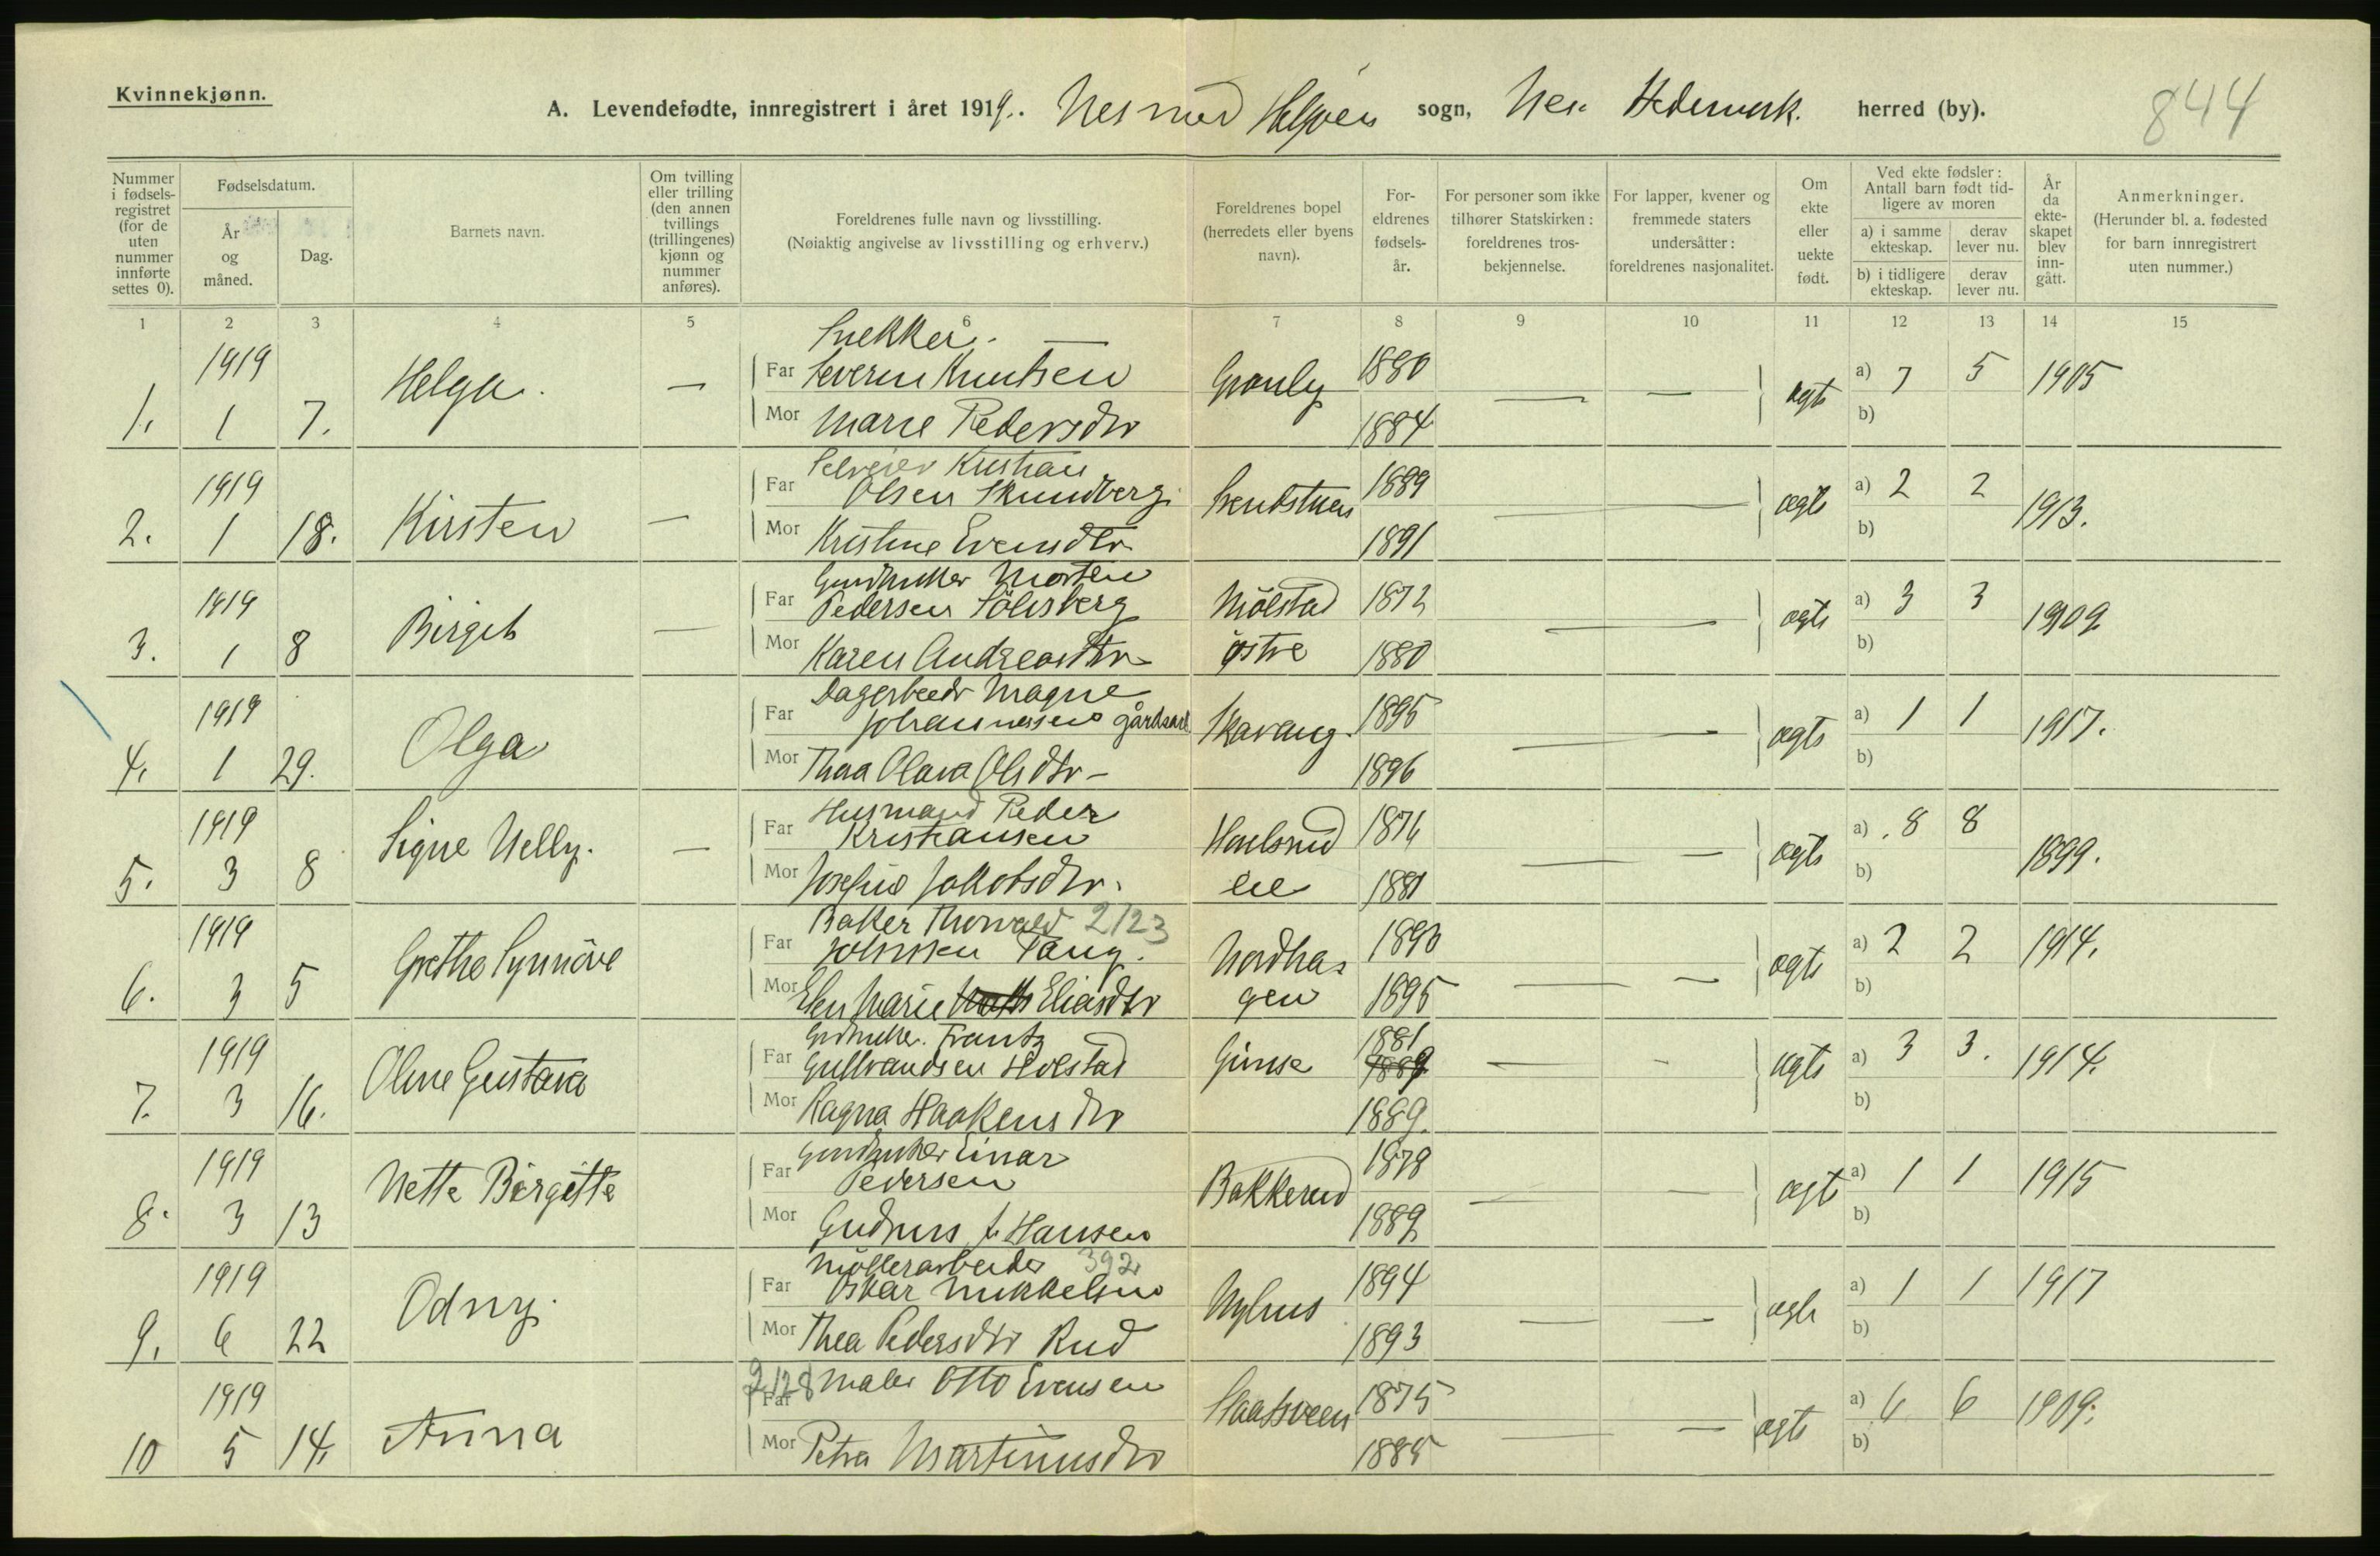 Kvinnekjønn.
A. Levendefødte, innregistrert i året 1919. Nes med Helgøen sogn, Nes Hedemark. herred (by). 844
Nummer i fødsels-registret (for de uten nummer innførte settes 0).
Fødselsdatum.
År og måned.
Dag.
Barnets navn.
Om tvilling eller trilling (den annen tvillings (trillingenes) kjønn og nummer anføres).
Foreldrenes fulle navn og livsstilling.
(Nøiaktig angivelse av livsstilling og erhverv.)
Foreldrenes bopel (herredets eller byens navn).
For-eldrenes fødsels-år.
For personer som ikke tilhører Statskirken: foreldrenes tros-bekjennelse.
For lapper, kvener og fremmede staters undersåtter: foreldrenes nasjonalitet.
Om ekte eller uekte født.
Ved ekte fødsler: Antall barn født tid-ligere av moren
a) i samme ekteskap.
derav lever nu.
b) i tidligere ekteskap.
derav lever nu.
År da ekte-skapet blev inn-gått.
Anmerkninger.
(Herunder bl. a. fødested for barn innregistrert uten nummer.)
1 2 3 4 5 6 7 8 9 10 11 12 13 14 15
Snekker. —
1919 Helga. — Far Severin Knutsen Granly 1880 — — ægte a) 7 5 1905
1. 1 7. Mor Marie Pedersdtr 1884 b)
Selveier Kristian
1919 Far Olsen Skundberg. 1889 a) 2 2
2. 1 18. Kirsten — Mor Kristine Evensdtr. 1891 ægte b) 1913.
Gårdbruker Morten
1919 Far Pedersen Mölstad 1872 a) 3 3
3. 1 8 Birgit — Mor Karen Andreasdtr østre 1880 ægte b) 1909
Dagarbeider Magne
1919 Far Johannessen gårdsarb. Skavang. 1895 a) 1 1 1917.
4. 1 29. Olga Mor Thea Olava Olsdtr — 1896 ægte b)
Husmand Peder
1919 Far Kristiansen 1876 a) 8 8
5. 3 8 Signe Nelly. — Mor Josefine Jakobsdtr. eie 1881 ægte b) 1899.
Baker Thorvald 2123
1919 Far Johnsen Tang. Nordha- 1890 a) 2 2 1914.
6. 3 5 Grethe Synnöve Mor Elen Marie Eliasdtr gen 1895 ægte b)
Gårdbruker. Frantz 1881
1919 Far Gulbrandsen Holstad Gimse 1889 a) 3 3. 1914.
7. 3 16. Oline Gustava Mor Ragna Haakensdtr 1889. ægte b)
Gårdbruker Einar 1878
1919 Far Pedersen Bakkerud a) 1 1 1915
8. 3 13 Nette Birgitte Mor Gudrun f. Hansen 1889 ægte b)
Möllerarbeider 392
1919 Far Oskar Mikkelsen Nyhus 1894 a) 1 1 1917
9. 6 22 Odny. Mor Thea Pedersdtr Rud 1893 ægte b)
2128 Maler Otto Evensen
1919 Far 1875 a) 6 6 1909.
10 5 14. Anna Mor Petra Martinusdtr 1885 ægte b)